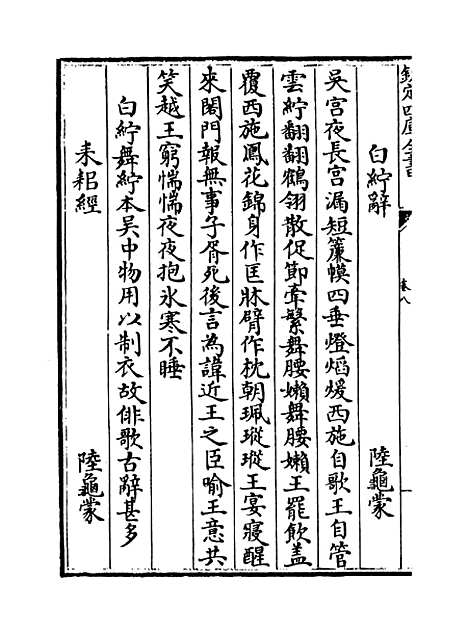 欽定四庫全書
卷八
白紵辭　陸龜蒙
吳宮夜長宮漏短簾幙四垂燈熖煖西施自歌王自管
雲紵翻翻鶴翎散促節牽繁舞腰嬾舞腰嬾王罷飲盖
覆西施鳳花錦身作匡牀臂作枕朝珮摐摐王宴寢醒
來閽門報無事子胥死後言為諱近王之臣喻王意共
笑越王窮惴惴夜夜抱氷寒不睡
白紵舞紵本吳中物用以制衣故俳歌古辭甚多
耒耜經　陸龜蒙